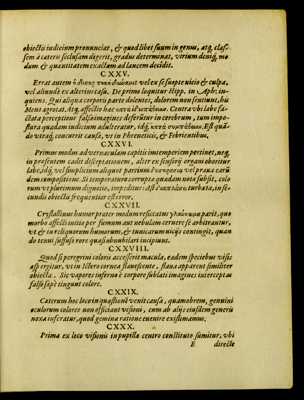 obiecti iudicium pronunciat, & quod libet suum in genus, atq; claſ-
sem à cæteris seclusam digerit, gradus determinat, vtrium deniq; mo-
dum & quantitatem exactam ad lancem decidit.
CXXV.
Errat autem vel ex se suapte vicio & culpa,
vel aliunde ex alterius casu. De primo loquitur Hipp. in Aphr. in-
quiens. Qui aliqua corporis parte dolentes, dolorem non sentiunt, his
Mens ægrotat, Atq; affectio hæc Contra vbi labe fa-
ctata perceptione falsa imagines deferuntur in cerebrum, tum impo-
stura quadam iudicium adulteratur, idq; Est quã-
do vtraq; concurrit causa, vt in Phreneticis, & Febrientibus,
CXXVI.
Primus modus ad vernaculam capitis intemperiem pertinet, neq;
in præsentem cadit disceptationem, alter ex sensorij organi oboritur
labe, idq; vel simplicium aliquot partium vel praua earũ-
dem compositione. Si temperatura corrupta quædam nota subsit, colo-
rum vt plurimum dignotio, impeditur: At si turbata, in se-
cundis obiectis frequentius est error.
CXXVII.
Crystallinus humor præter modum resiccatus parit, quo
morbo afflicti intra per fumum aut nebulam cernere se arbitrantur,
vt & in reliquorum humorum, & tunicarum vicijs contingit, quan
do tenui suffusi rore quasi nubulari incipiunt.
CXXVIII.
Quod si peregrini coloris accesserit macula, eædem speciebus visis
asp ergitur, vt in Ictero cornea flauescente, flaua apparent similiter
obiecta. Sic vapores inferno è corpore sublati imagines interceptas
falsè sæpè tingunt colore.
CXXIX.
Cæterum hoc loco in quæstionē venit causa, quamobrem, genuini
oculorum colores non officiant visioni, cum ab alijs eiusdem generis
noxa inferatur, quod gemina ratione euenire existimamus.
CXXX.
Prima ex loco visionis in pupillæ centro constituto sumitur, vbi
E directè